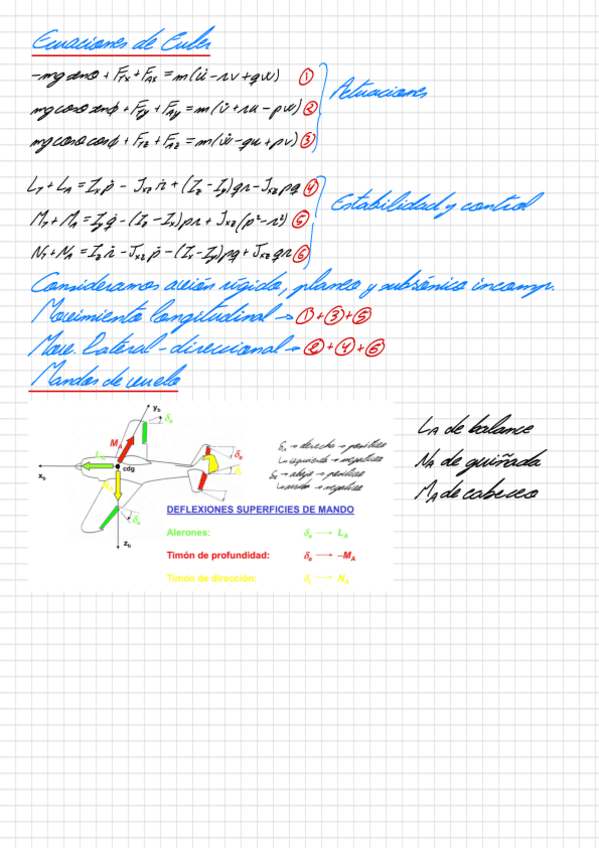 Ecuaciones de Euler
-mg senθ + F_Tx + F_Ax = m(u̇ - rv + qw) ①
mg cosθ senϕ + F_Ty + F_Ay = m(v̇ + ru - pw) ②
mg cosθ cosϕ + F_Tz + F_Az = m(ẇ - qu + pv) ③
Actuaciones
L_T + L_A = I_x ṗ - J_xz ṙ + (I_z - I_y)qr - J_xz pq ④
M_T + M_A = I_y q̇ - (I_z - I_x)pr + J_xz(p² - r²) ⑤
N_T + N_A = I_z ṙ - J_xz ṗ - (I_x - I_y)pq + J_xz qr ⑥
Estabilidad y control
Consideramos avión rígido, planeo y subsónico incomp.
Movimiento longitudinal → ①+③+⑤
Mov. lateral-direccional → ②+④+⑥
Mandos de vuelo
y_b
δ_a
M_A
L_A
cdg
x_b
N_A
δ_e
δ_r
δ_a
z_b
δ_A → derecho → positivo
↳ izquierdo → negativo
δ_e → abajo → positivo
↳ arriba → negativo
DEFLEXIONES SUPERFICIES DE MANDO
Alerones: δ_a → L_A
Timón de profundidad: δ_e → -M_A
Timón de dirección: δ_r → N_A
L_A de balance
N_A de guiñada
M_A de cabeceo